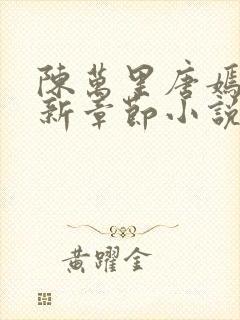 陳萬里唐嫣
新章節小說
黃躍金